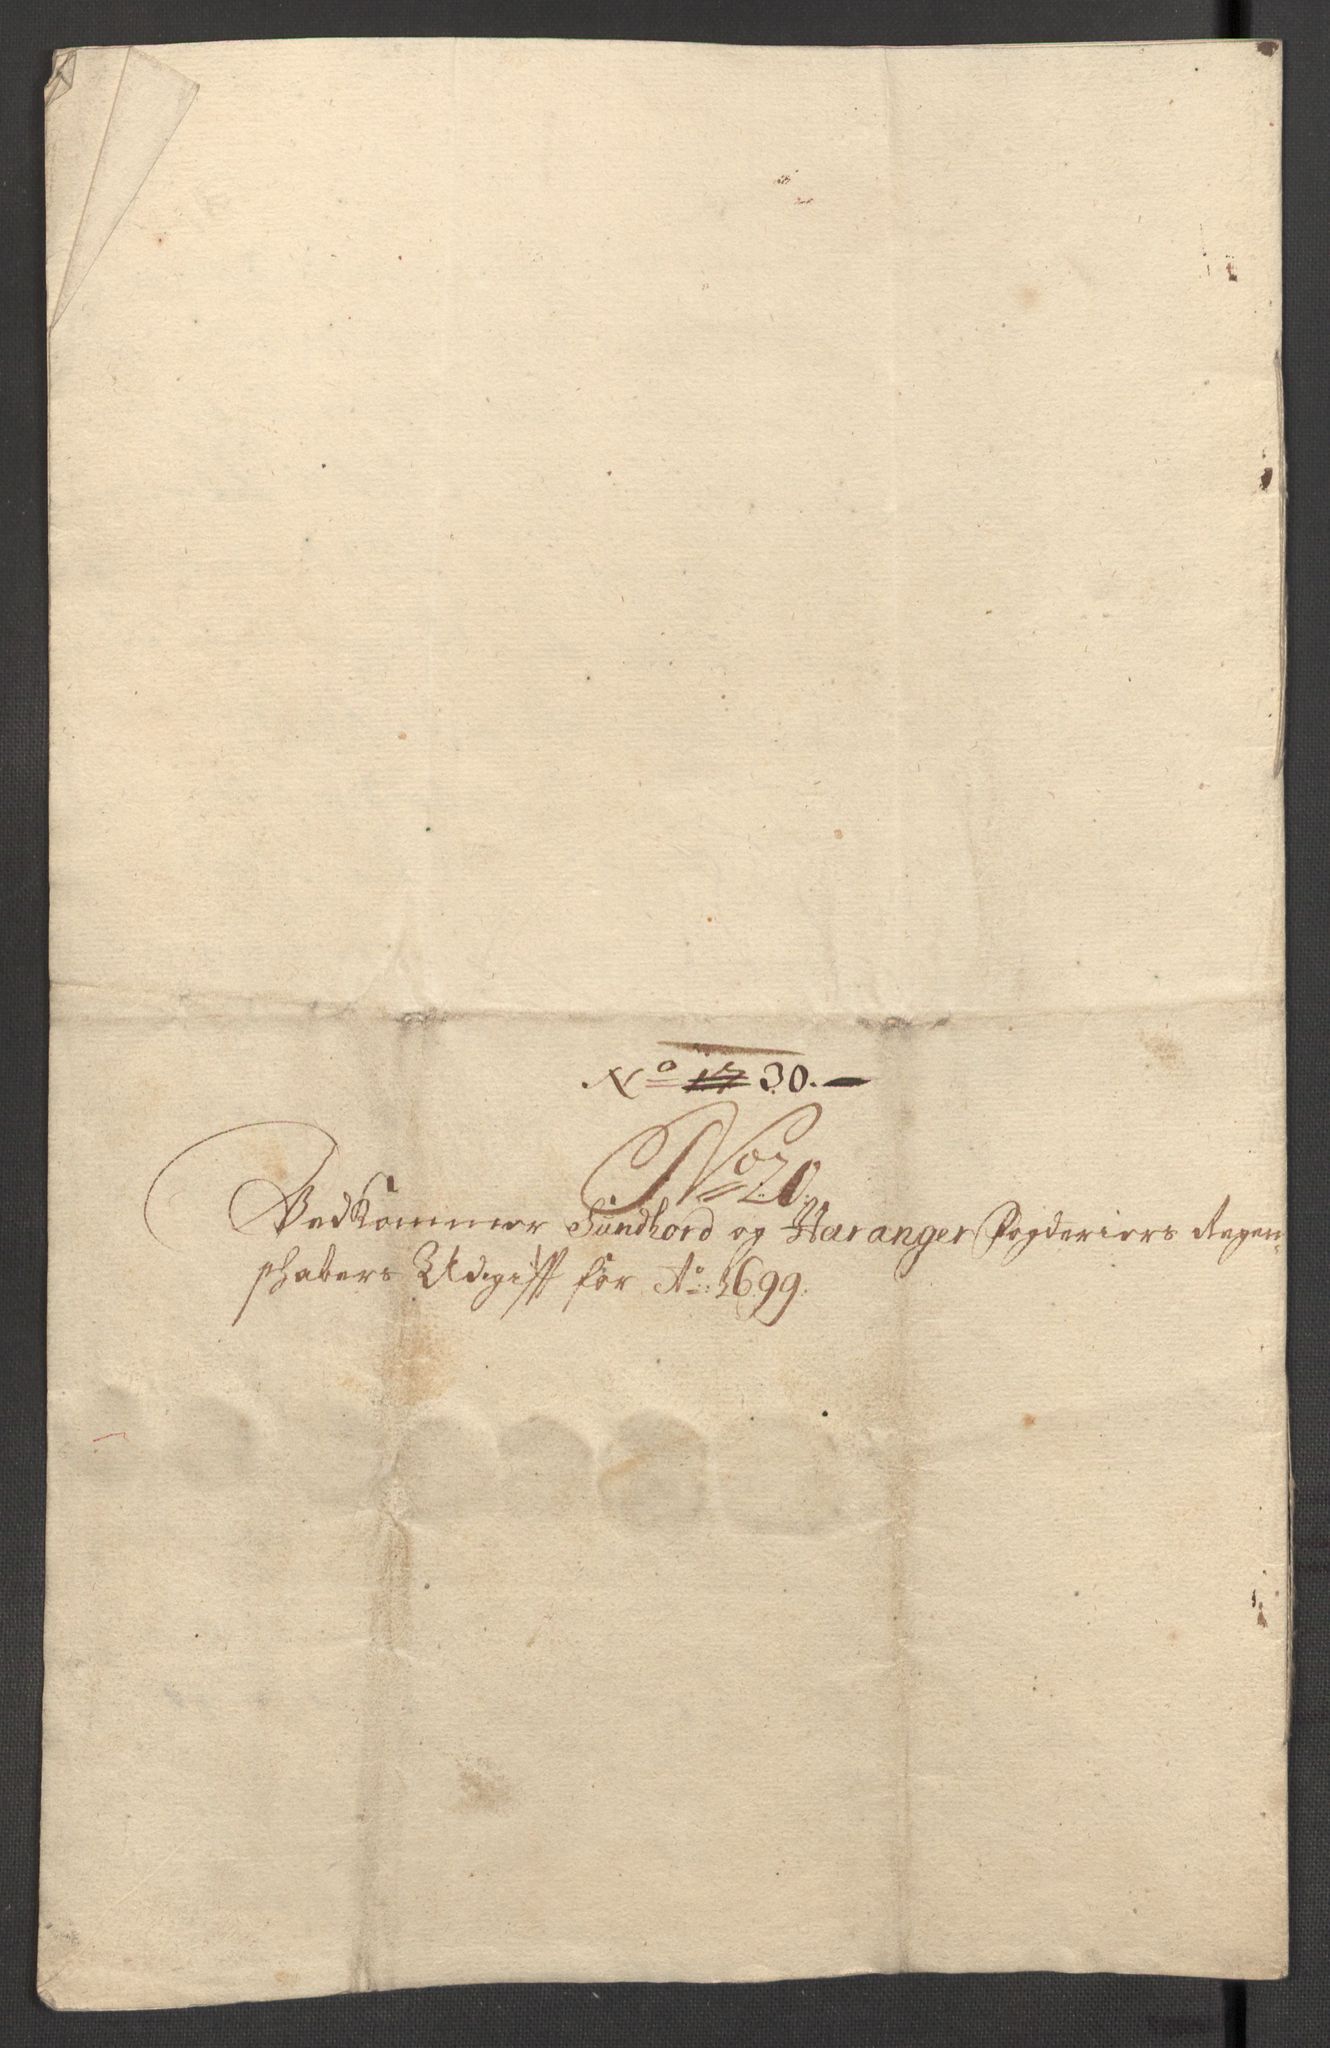 No 17 30.
No 20.
Vedkommer Sundhord og Haranger Fogderiers Regen-
schabers Udgifft for Ao: 1699.